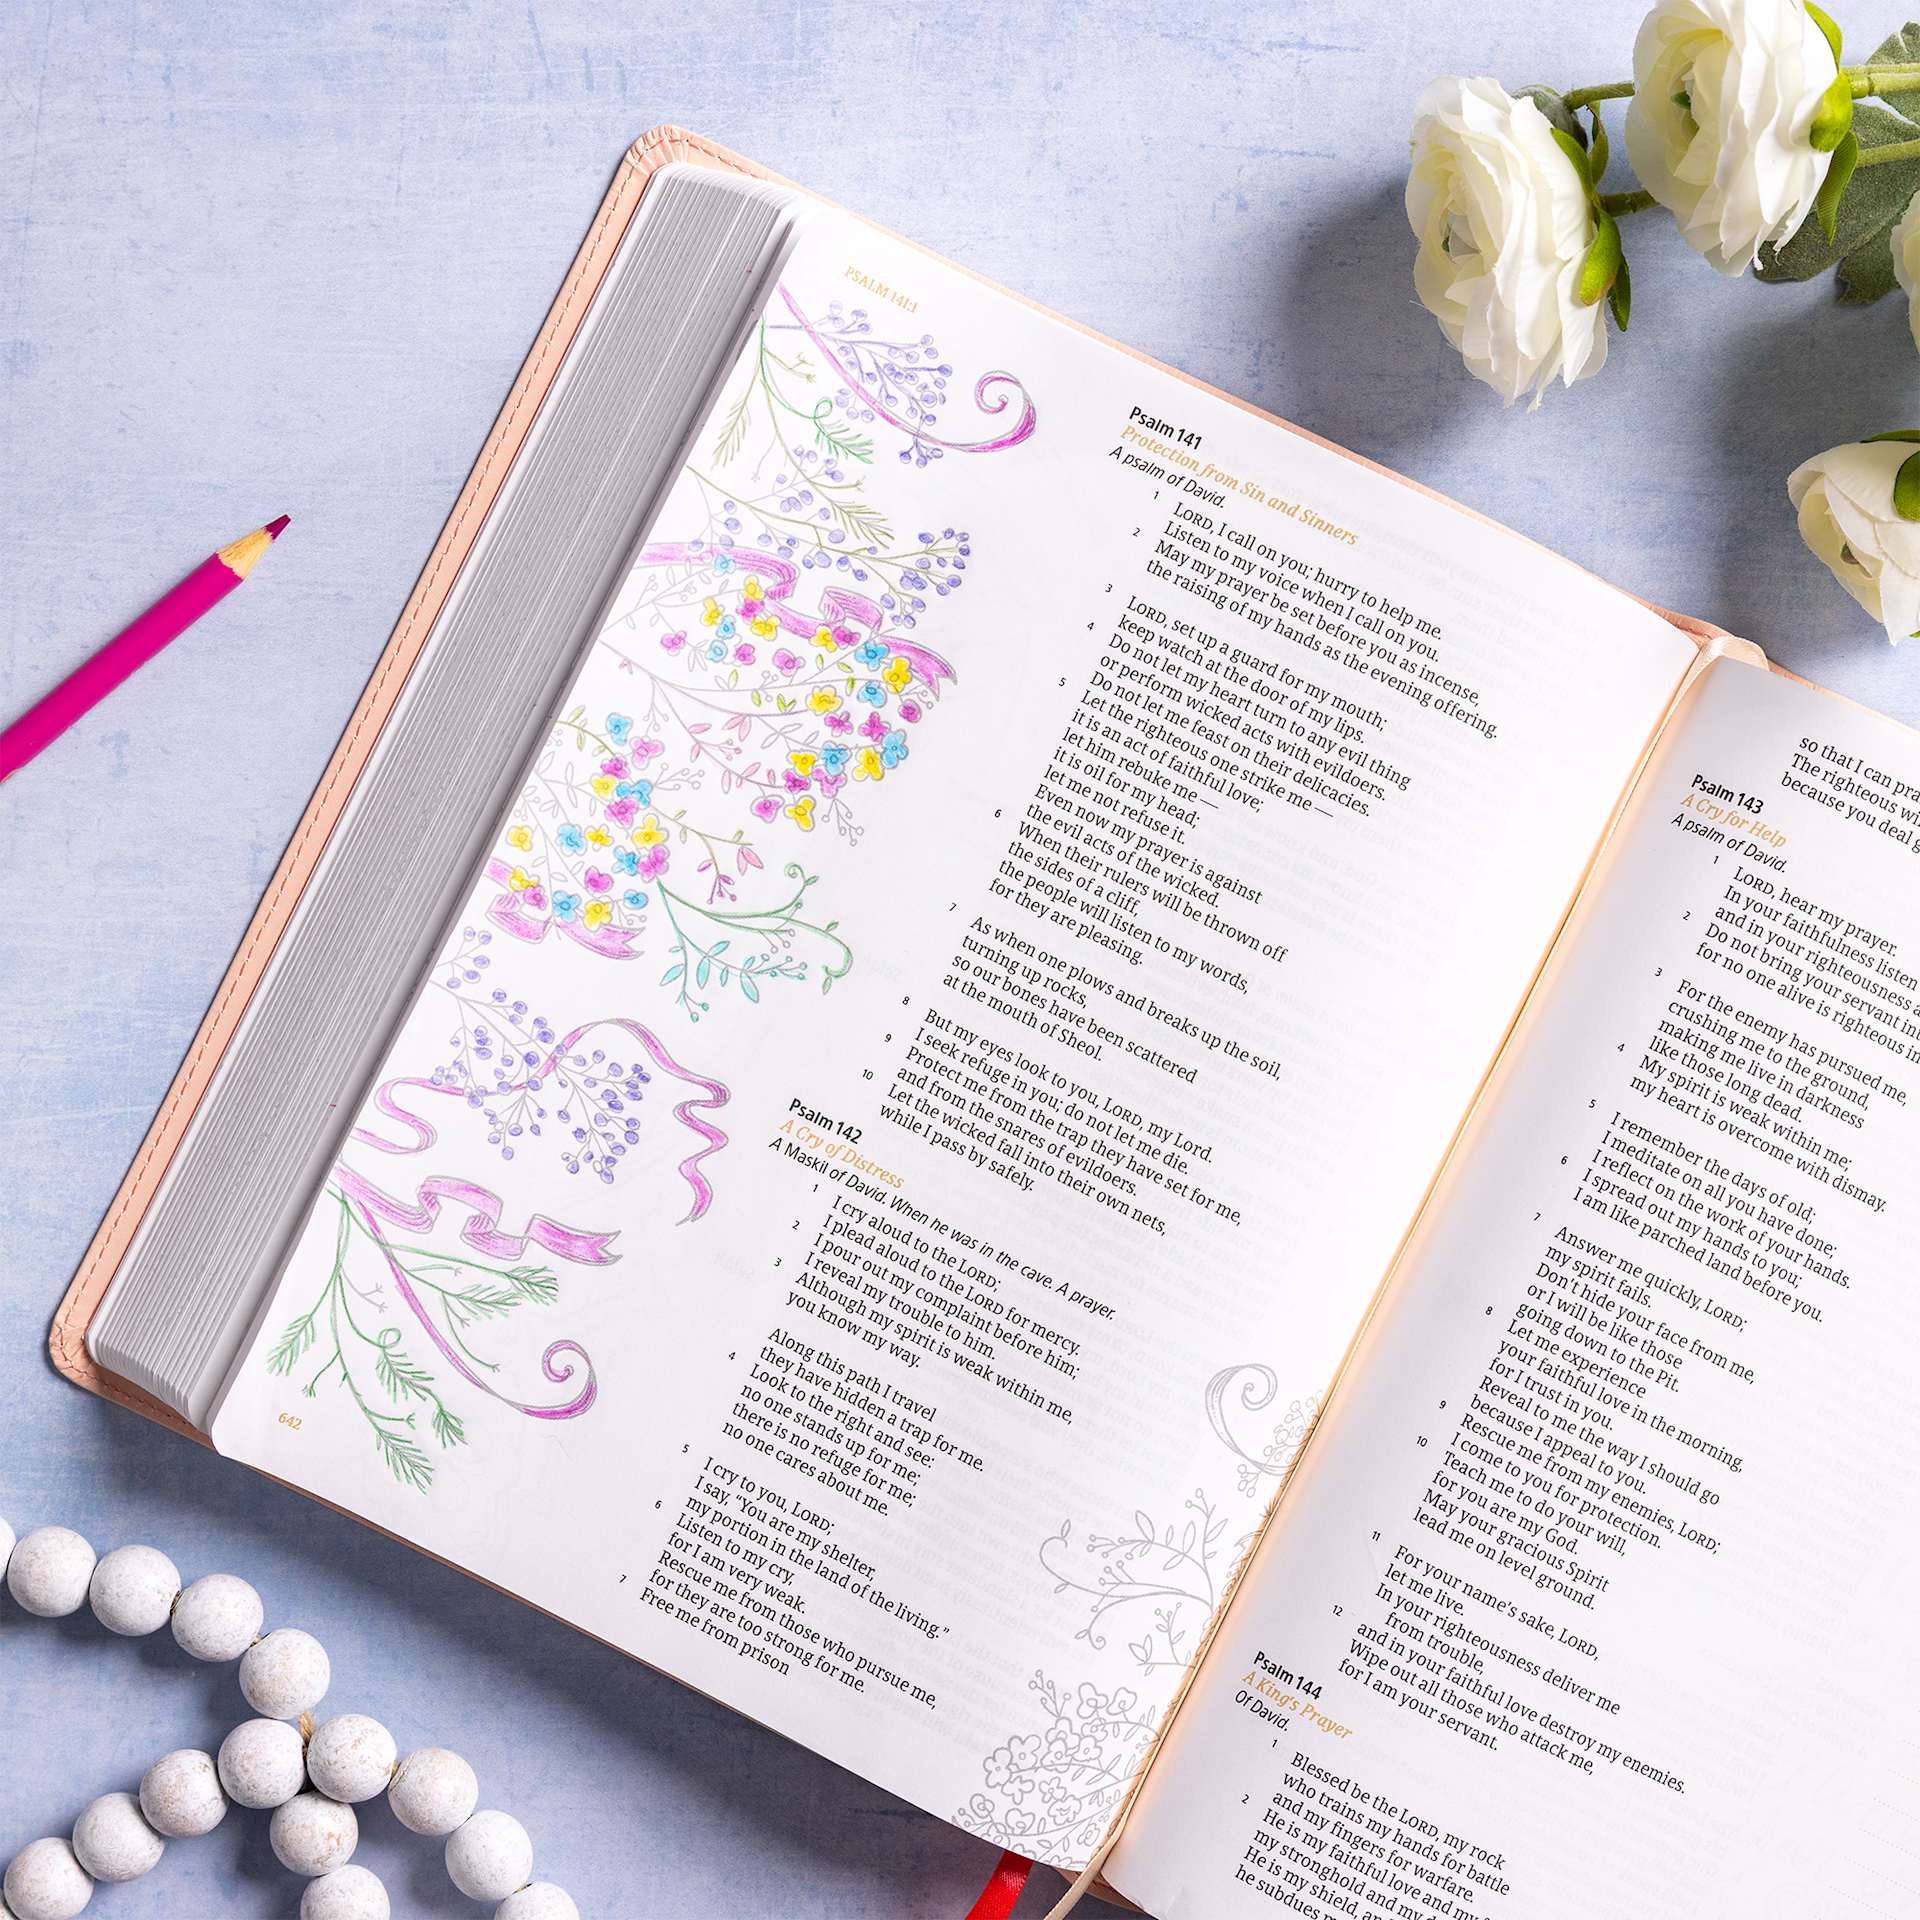 PSALM 141:1
Psalm 141
Protection from Sin and Sinners
A psalm of David.
1 LORD, I call on you; hurry to help me.
Listen to my voice when I call on you.
2 May my prayer be set before you as incense,
the raising of my hands as the evening offering.
3 LORD, set up a guard for my mouth;
keep watch at the door of my lips.
4 Do not let my heart turn to any evil thing
or perform wicked acts with evildoers.
Do not let me feast on their delicacies.
5 Let the righteous one strike me —
it is an act of faithful love;
let him rebuke me —
it is oil for my head;
let me not refuse it.
Even now my prayer is against
the evil acts of the wicked.
6 When their rulers will be thrown off
the sides of a cliff,
the people will listen to my words,
for they are pleasing.
7 As when one plows and breaks up the soil,
turning up rocks,
so our bones have been scattered
at the mouth of Sheol.
8 But my eyes look to you, LORD, my Lord.
I seek refuge in you; do not let me die.
9 Protect me from the trap they have set for me,
and from the snares of evildoers.
10 Let the wicked fall into their own nets,
while I pass by safely.
Psalm 142
A Cry of Distress
A Maskil of David. When he was in the cave. A prayer.
1 I cry aloud to the LORD;
I plead aloud to the LORD for mercy.
2 I pour out my complaint before him;
I reveal my trouble to him.
3 Although my spirit is weak within me,
you know my way.
Along this path I travel
they have hidden a trap for me.
4 Look to the right and see:
no one stands up for me;
there is no refuge for me;
no one cares about me.
5 I cry to you, LORD;
I say, “You are my shelter,
my portion in the land of the living.”
6 Listen to my cry,
for I am very weak.
Rescue me from those who pursue me,
for they are too strong for me.
7 Free me from prison
642
so that I can
The righteous
because you deal
Psalm 143
A Cry for Help
A psalm of David.
1 LORD, hear my prayer.
In your faithfulness listen
and in your righteousness
2 Do not bring your servant
for no one alive is righteous
3 For the enemy has pursued me,
crushing me to the ground,
making me live in darkness
like those long dead.
4 My spirit is weak within me;
my heart is overcome with dismay.
5 I remember the days of old;
I meditate on all you have done;
I reflect on the work of your hands.
6 I spread out my hands to you;
I am like parched land before you.
7 Answer me quickly, LORD;
my spirit fails.
Don’t hide your face from me,
or I will be like those
going down to the Pit.
8 Let me experience
your faithful love in the morning,
for I trust in you.
Reveal to me the way I should go
because I appeal to you.
9 Rescue me from my enemies, LORD;
I come to you for protection.
10 Teach me to do your will,
for you are my God.
May your gracious Spirit
lead me on level ground.
11 For your name’s sake, LORD,
let me live.
In your righteousness deliver me
from trouble,
12 and in your faithful love destroy my enemies.
Wipe out all those who attack me,
for I am your servant.
Psalm 144
A King’s Prayer
Of David.
1 Blessed be the LORD, my rock
who trains my hands for battle
and my fingers for warfare.
2 He is my faithful love and my
my stronghold and my
He is my shield,
he subdues